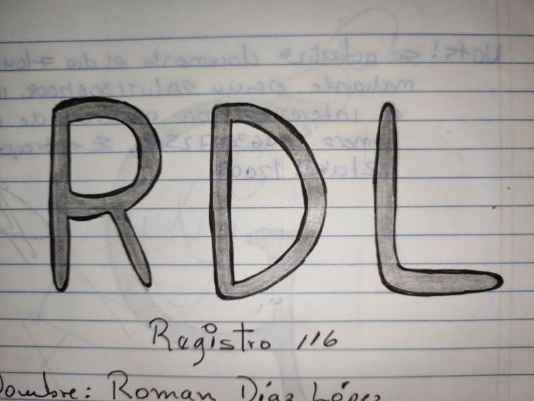 RDL
Registro 116
Nombre: Roman Díaz López